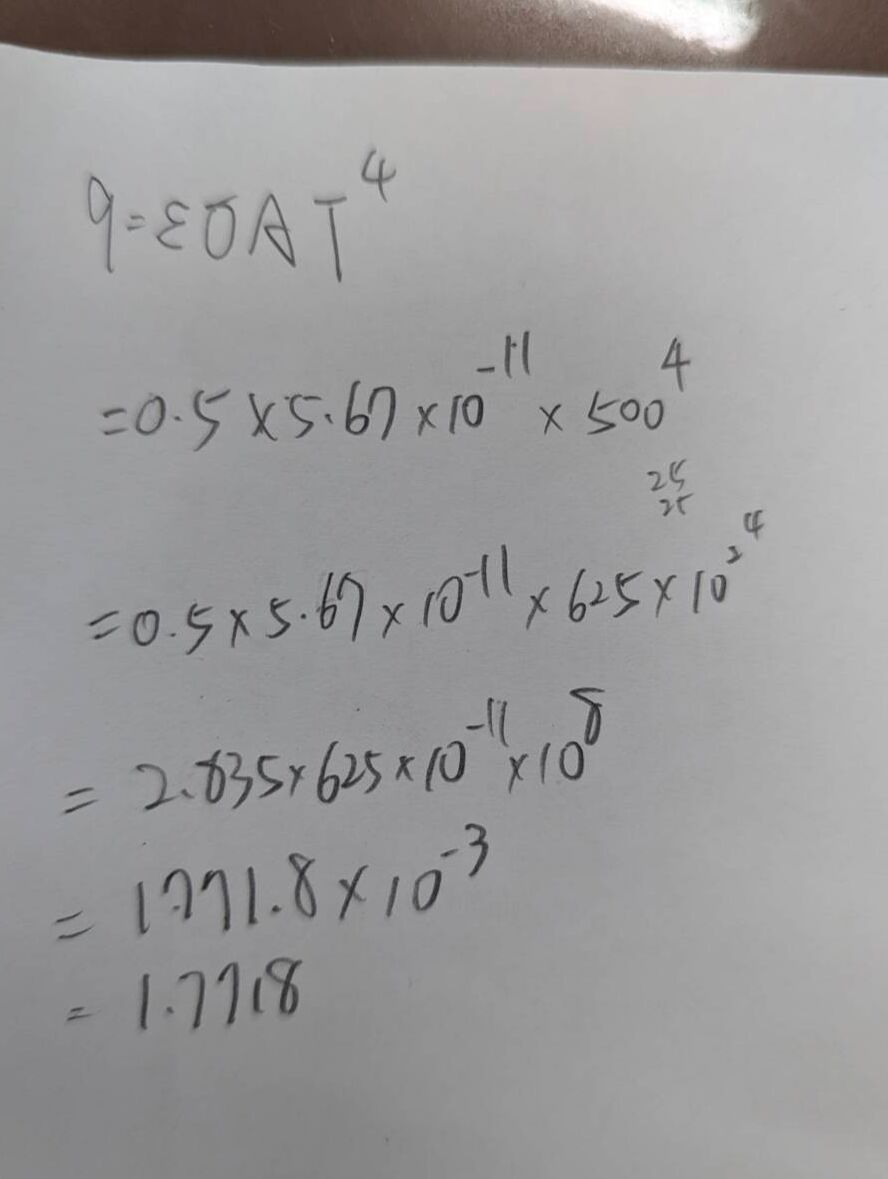 q=εσAT⁴
=0.5×5.67×10⁻¹¹×500⁴
25
25
=0.5×5.67×10⁻¹¹×625×10²⁴
=2.835×625×10⁻¹¹×10⁸
=1771.8×10⁻³
=1.7718